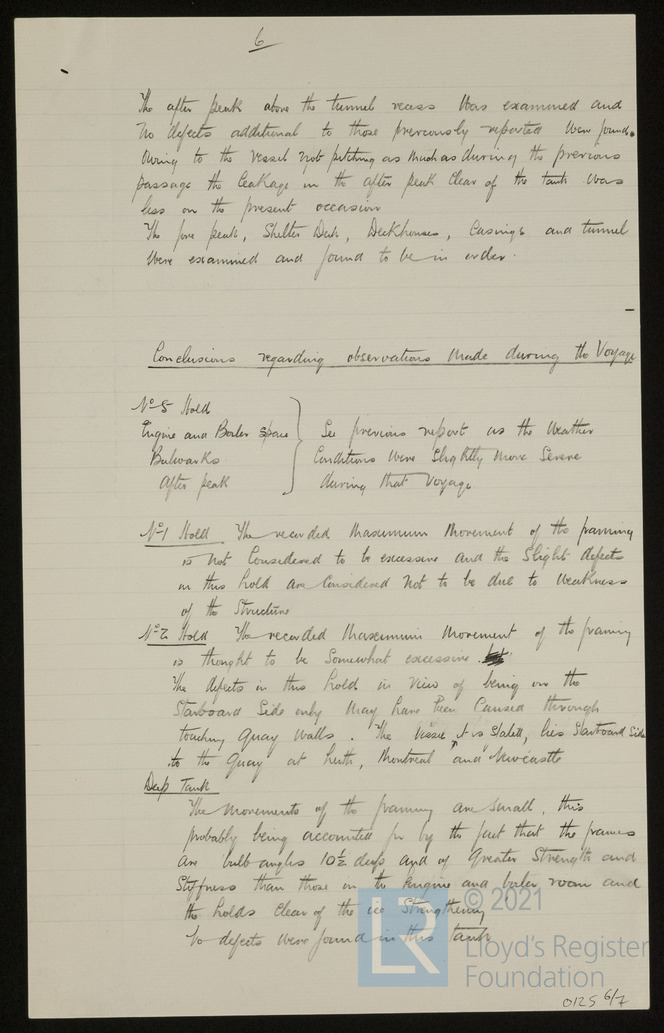 6
The after peak above the tunnel recess was examined and
no defects additional to those previously reported were found.
Owing to the vessel not pitching as much as during the previous
passage the leakage in the after peak clear of the tank was
less on the present occasion
The fore peak, Shelter Deck, Deckhouses, Casings and tunnel
were examined and found to be in order.
Conclusions regarding observations made during the Voyage
No 5 Hold
Engine and Boiler space
Bulwarks
After peak
See previous report as the weather
conditions were slightly more severe
during that voyage
No 1 Hold The recorded maximum movement of the framing
is not considered to be excessive and the slight defects
in this hold are considered not to be due to weakness
of the structure
No 2 Hold The recorded maximum movement of the framing
is thought to be somewhat excessive.
The defects in this hold in view of being on the
Starboard Side only may have been caused through
touching quay walls. The vessel it is stated, lies Starboard Side
to the Quay at Leith, Montreal and Newcastle
Deep Tank
The movements of the framing are small, this
probably being accounted for by the fact that the frames
are bulb angles 10½ deep and of greater strength and
stiffness than those in the Engine and boiler room and
the holds clear of the ice strengthening
No defects were found in this tank.
© 2021
LR
Lloyd's Register
Foundation
0125 6/7